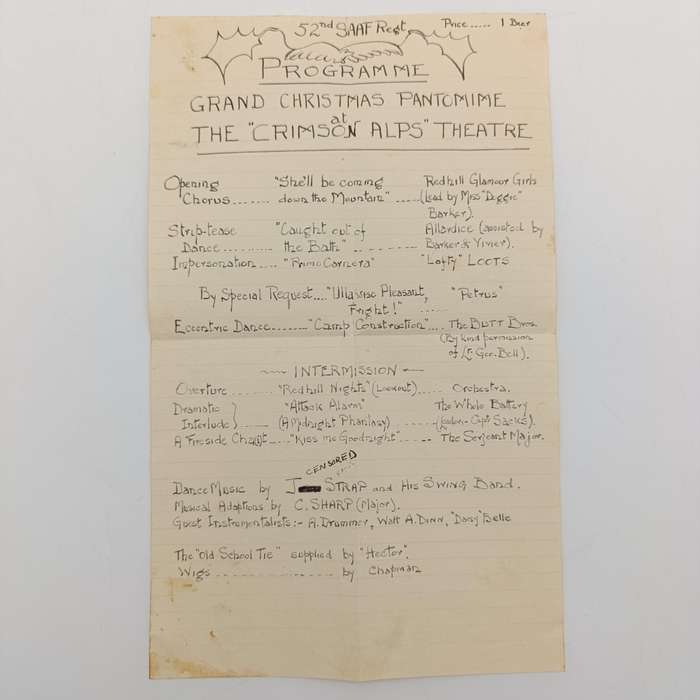 52nd SAAF Regt. Price..... 1 Beer
PROGRAMME
GRAND CHRISTMAS PANTOMIME
at
THE "CRIMSON ALPS" THEATRE
Opening "She'll be coming Redhill Glamour Girls
Chorus....... down the Mountain" ..... (lead by Miss "Doggie"
Barker).
Strip-tease "Caught out of Allardice (assisted by
Dance.......... the Bath" .......... Barker & Vivier).
Impersonation.... "Primo Carnera" "Lofty" LOOTS
By Special Request.... Pleasant, "Petrus"
Fright!" ......
Eccentric Dance........ "Camp Construction".... The BUTT Bros.
(By kind permission
of Lt. Geo. Bell).
INTERMISSION
Overture ....... "Redhill Nights" (Lookout)..... Orchestra.
Dramatic } "Attack Alarm" The Whole Battery
Interlude } ..... (A Midnight Phantasy) ...... ( Capt SACKS).
A Fireside Chat.... "Kiss me Goodnight" ..... The Serjeant Major.
CENSORED
Dance Music by J STRAP and His SWING Band.
Musical Adaptions by C. SHARP (Major).
Guest Instrumentalists:- A. Drummer, Walt A. Dinn, "Dasy" Belle
The "Old School Tie" supplied by "Hector".
Wigs .................. by Chapman